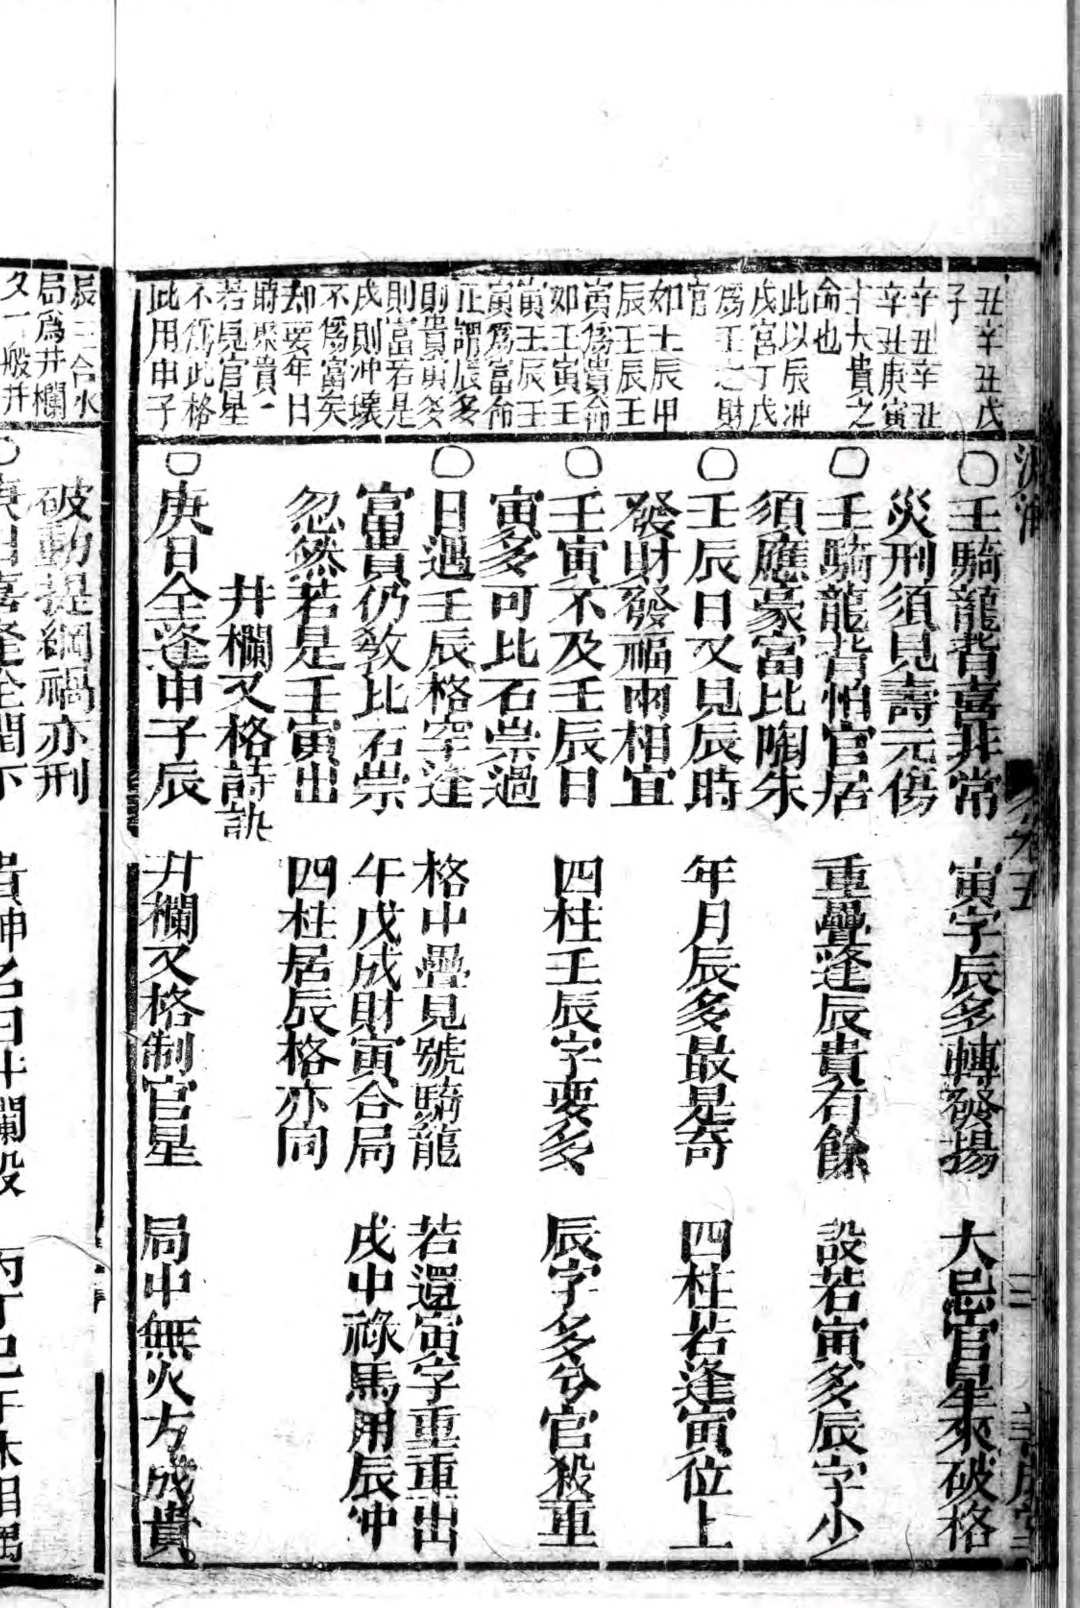 丑辛丑戊
子
辛丑辛丑
辛丑庚寅
十大貴之
命也
此以辰冲
戌宮丁戊
為壬之財
官
如壬辰甲
辰壬辰壬
寅為貴命
如壬寅壬
寅壬辰壬
寅為富命
正謂辰多
則貴寅多
則富若是
戌則冲壞
不為富矣
却要年日
時聚貴
若見官星
不為此格
此用申子
辰三合水
局為井欄
又一般井
○壬騎龍背喜非常 寅字辰多轉發揚 大忌官星來破格
災刑須見壽元傷
○壬騎龍背怕官居 重疊逢辰貴有餘 設若寅多辰字少
須應豪富比陶朱
○壬辰日又見辰時 年月辰多最是奇 四柱若逢寅位上
發財發福兩相宜
○壬寅不及壬辰日 四柱壬辰字要多 辰字多兮官殺重
寅多可比石崇過
○日過壬辰格罕逢 格中疊見號騎龍 若還寅字重重出
富貴仍教比石崇 午戊成財寅合局 戌中祿馬用辰冲
忽然若是壬寅出 四柱居辰格亦同
井欄又格詩訣
○庚日全逢申子辰 井欄又格制官星 局中無火方成貴
破動提綱禍亦刑
卷五